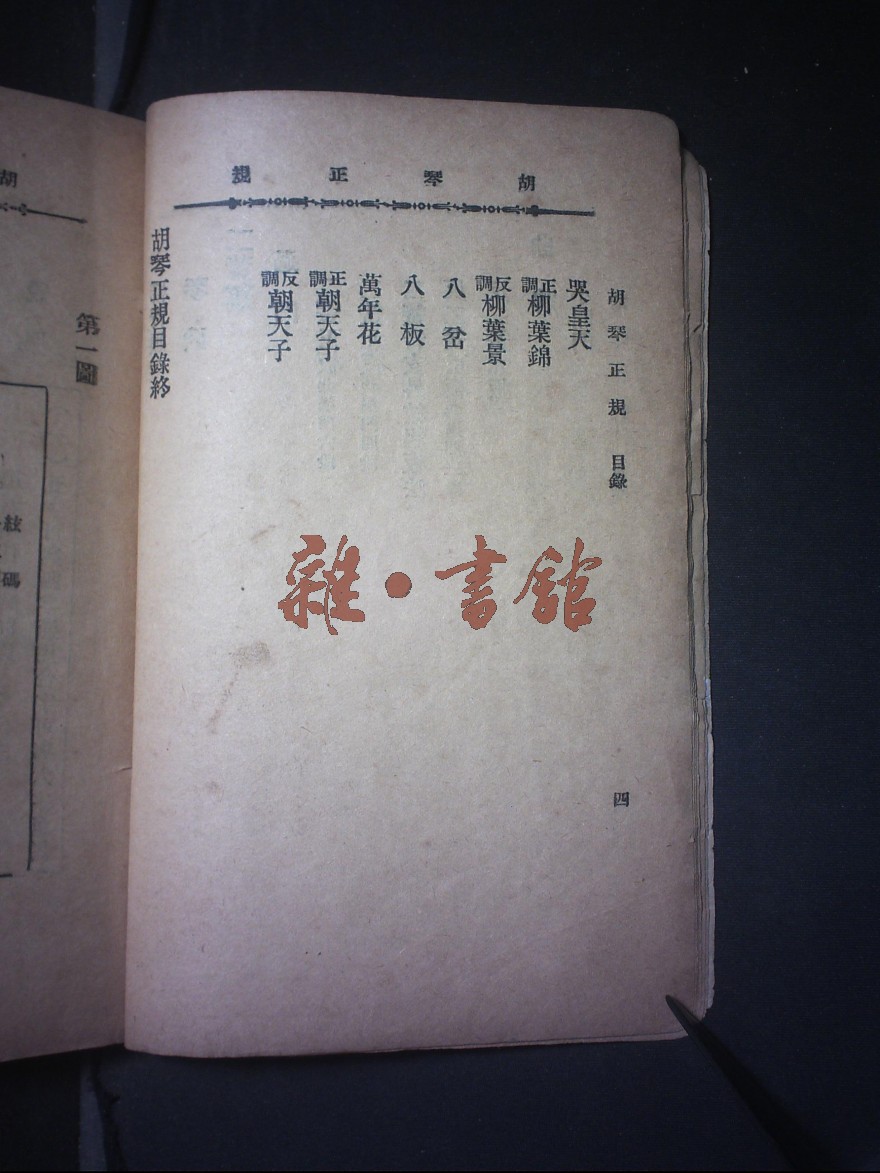 胡琴正規
胡琴正規 目錄
四
哭皇天
正調柳葉錦
反調柳葉景
八岔
八板
萬年花
正調朝天子
反調朝天子
胡琴正規目錄終
雜·書館
胡
第一圖
絃
碼